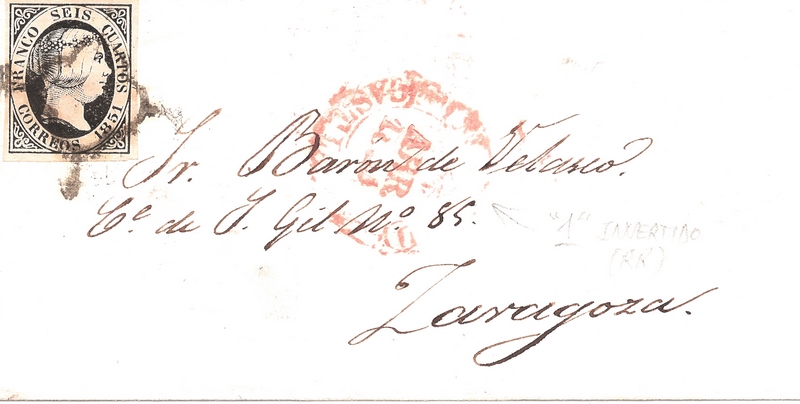 FRANCO SEIS CUARTOS
CORREOS 1851
Sr. Baron de Velasco.
Ce. de S. Gil No. 85.
"1" INVERTIDO
(RR)
Zaragoza.